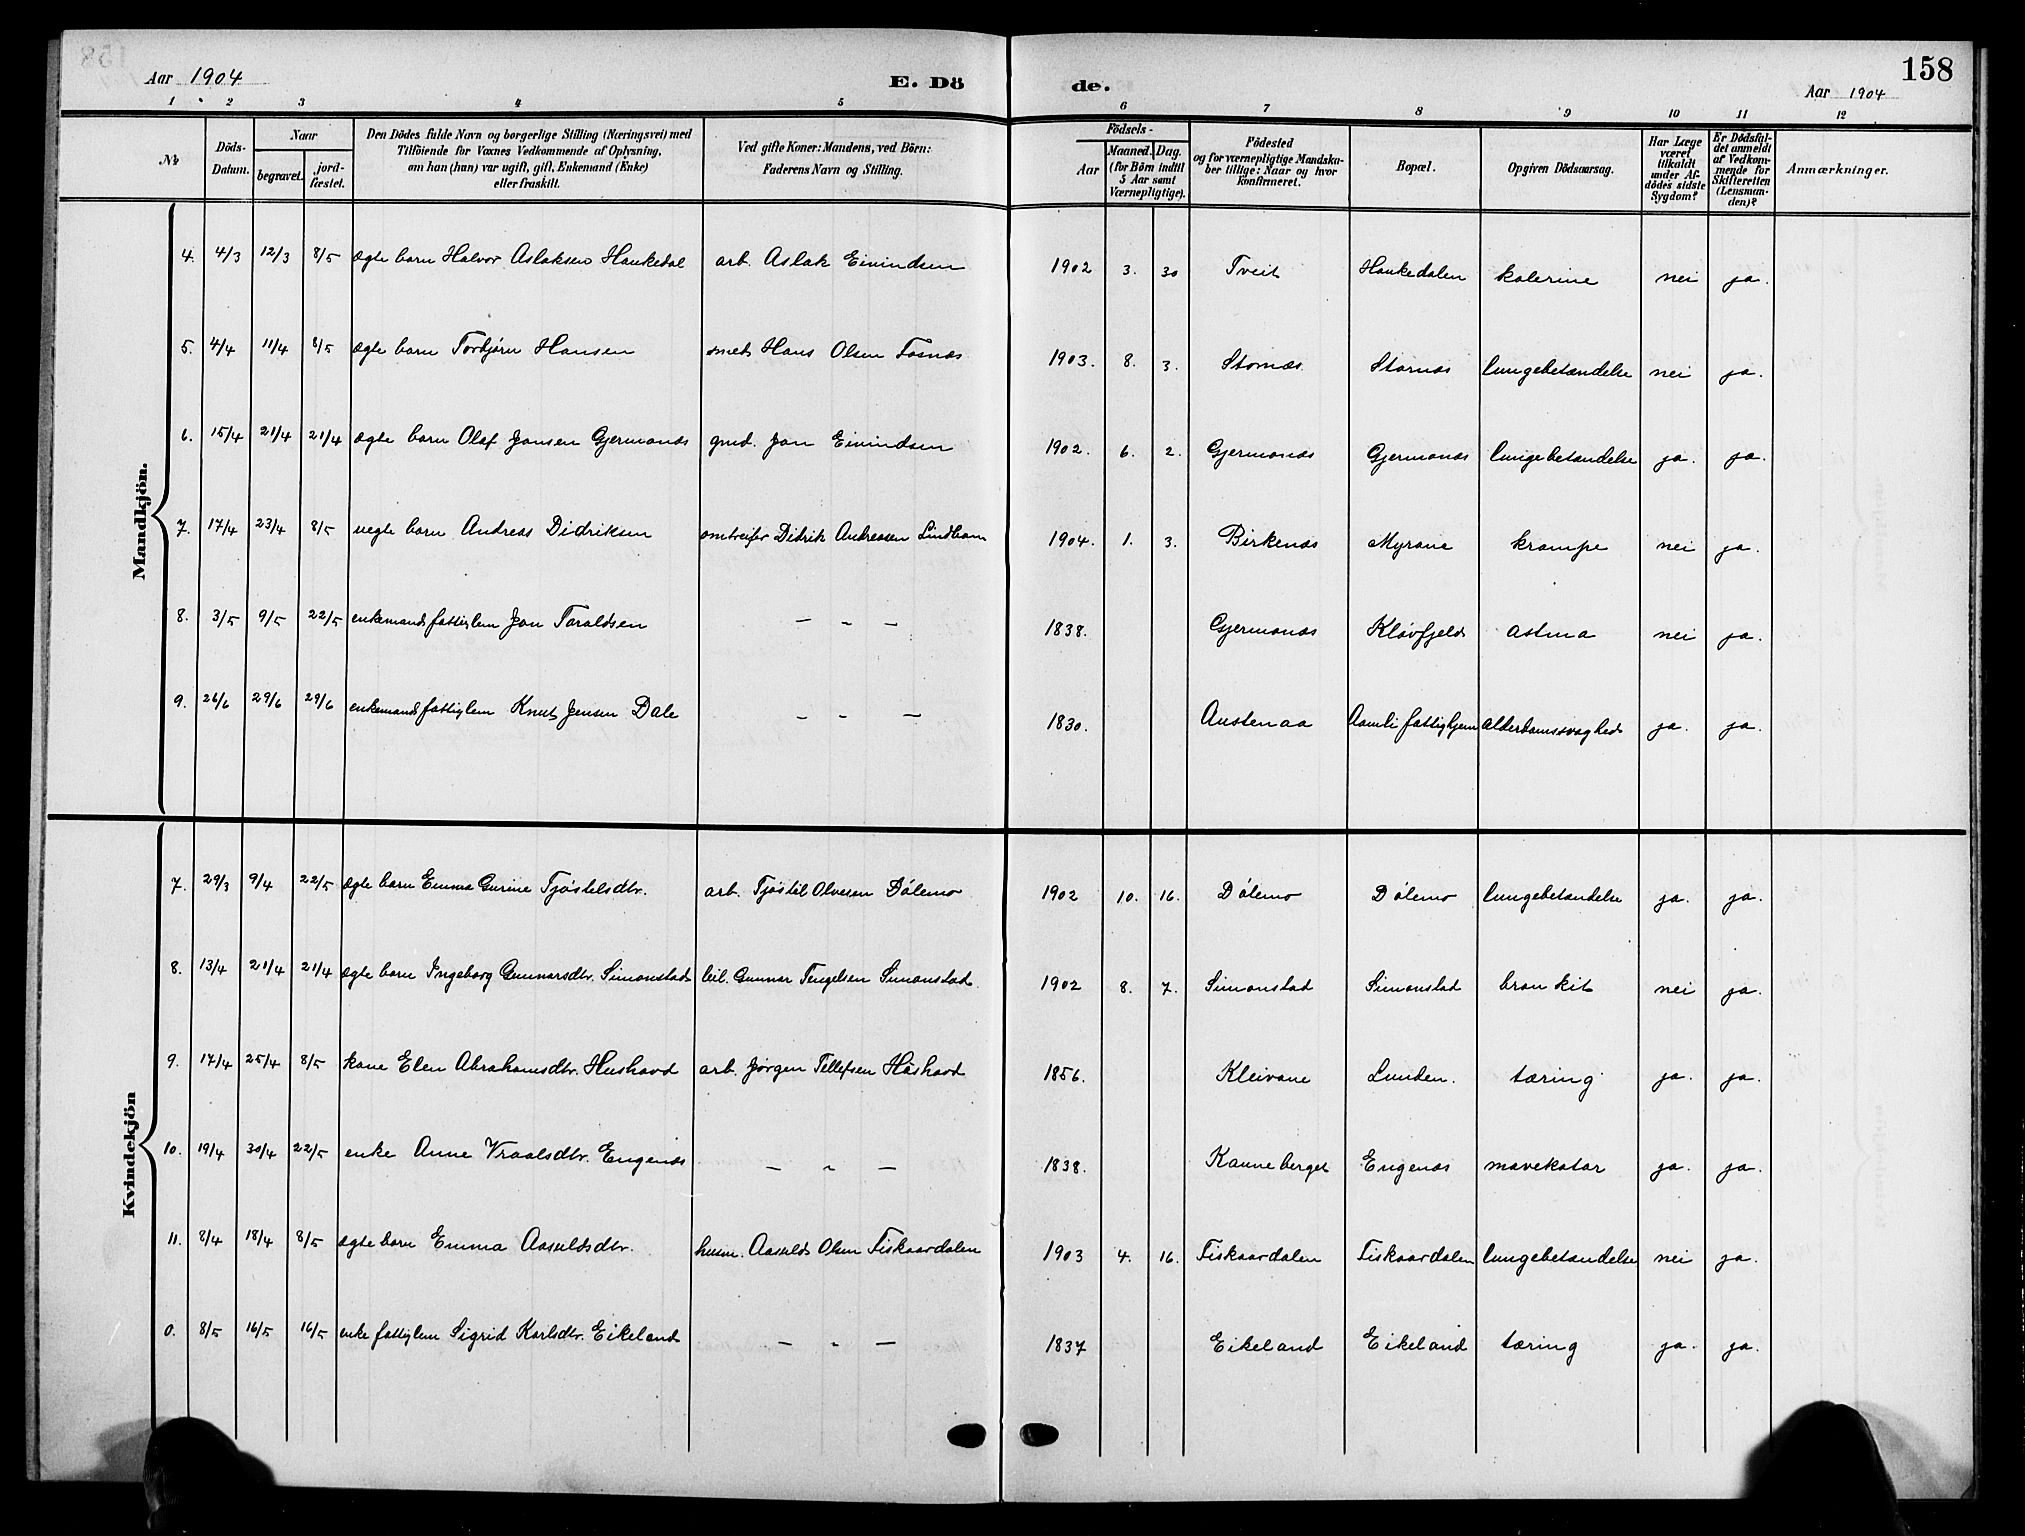 158
Aar 1904 E. Dö de. Aar 1904
1 2 3 4 5 6 7 8 9 10 11 12
No Döds-Datum. Naar begravet. jord-fæstet. Den Dödes fulde Navn og borgerlige Stilling (Næringsvei) med Tilföiende for Voxnes Vedkommende af Oplysning, om han (hun) var ugift, gift, Enkemand (Enke) eller fraskilt. Ved gifte Koner: Mandens, ved Börn: Faderens Navn og Stilling. Födsels- Aar Maaned. Dag. (for Börn indtil 5 Aar samt Værnepligtige). Födested og for værnepligtige Mandskaber tillige: Naar og hvor konfirmeret. Bopæl. Opgiven Dödsaarsag. Har Læge været tilkaldt under Afdödes sidste Sygdom? Er Dödsfaldet anmeldt af Vedkommende for Skifteretten (Lensmanden)? Anmærkninger.
Mandkjön.
4. 4/3 12/3 8/5 ægte barn Halvor Aslaksen Haukedal arb. Aslak Eivindsen 1902 3. 30 Tveit Haukedalen kolerine nei ja.
5. 4/4 11/4 8/5 ægte barn Torbjørn Hansen smed Hans Olsen 1903. 8. 3. Stornæs. Stornæs lungebetændelse nei ja.
6. 15/4 21/4 21/4 ægte barn Olaf Jonsen Gjermonæs gmd. Jon Eivindsen 1902. 6. 2. Gjermonæs Gjermonæs lungebetændelse ja. ja.
7. 17/4 23/4 8/5 uegte barn Andreas Didriksen omtreifer Didrik Andreasen Lindtom 1904. 1. 3. Birkenæs Myrane krampe nei ja.
8. 3/5 9/5 22/5 enkemand fattiglem Jon Taraldsen — " — 1838. Gjermonæs Kløvfjeld astma nei ja.
9. 26/6 29/6 29/6 enkemand fattiglem Knut Jensen Dale — " — 1830. Austenaa Aamli fattighjem alderdomssvaghed ja. ja.
Kvindekjön
7. 29/3 9/4 22/5 ægte barn Emma Gurine Tjøstelsdtr. arb. Tjøstel Olvesen Dølemo 1902 10. 16. Dølemo Dølemo lungebetændelse ja. ja.
8. 13/4 21/4 21/4 ægte barn Ingeborg Gunnarsdtr. Simonstad leil. Gunnar Tengelsen Simonstad. 1902 8. 7. Simonstad Simonstad bronkit nei ja.
9. 17/4 25/4 8/5 kone Elen Abrahamsdtr. Hushovd arb. Jørgen Tellefsen Håshovd 1856. Kleivane Lunden. tæring ja. ja.
10. 19/4 30/4 22/5 enke Anne Vraalsdtr. Engenæs — " — 1838. Kanneberget Engenæs mavekatar ja. ja.
11. 8/4 18/4 8/5 ægte barn Emma Aasuldsdtr. husm. Aasuld Olsen Fiskaardalen 1903 4. 16. Fiskaardalen Fiskaardalen lungebetændelse nei ja.
0. 8/5 16/5 16/5 enke fattiglem Sigrid Karlsdtr. Eikeland — " — 1837 Eikeland Eikeland tæring ja. ja.